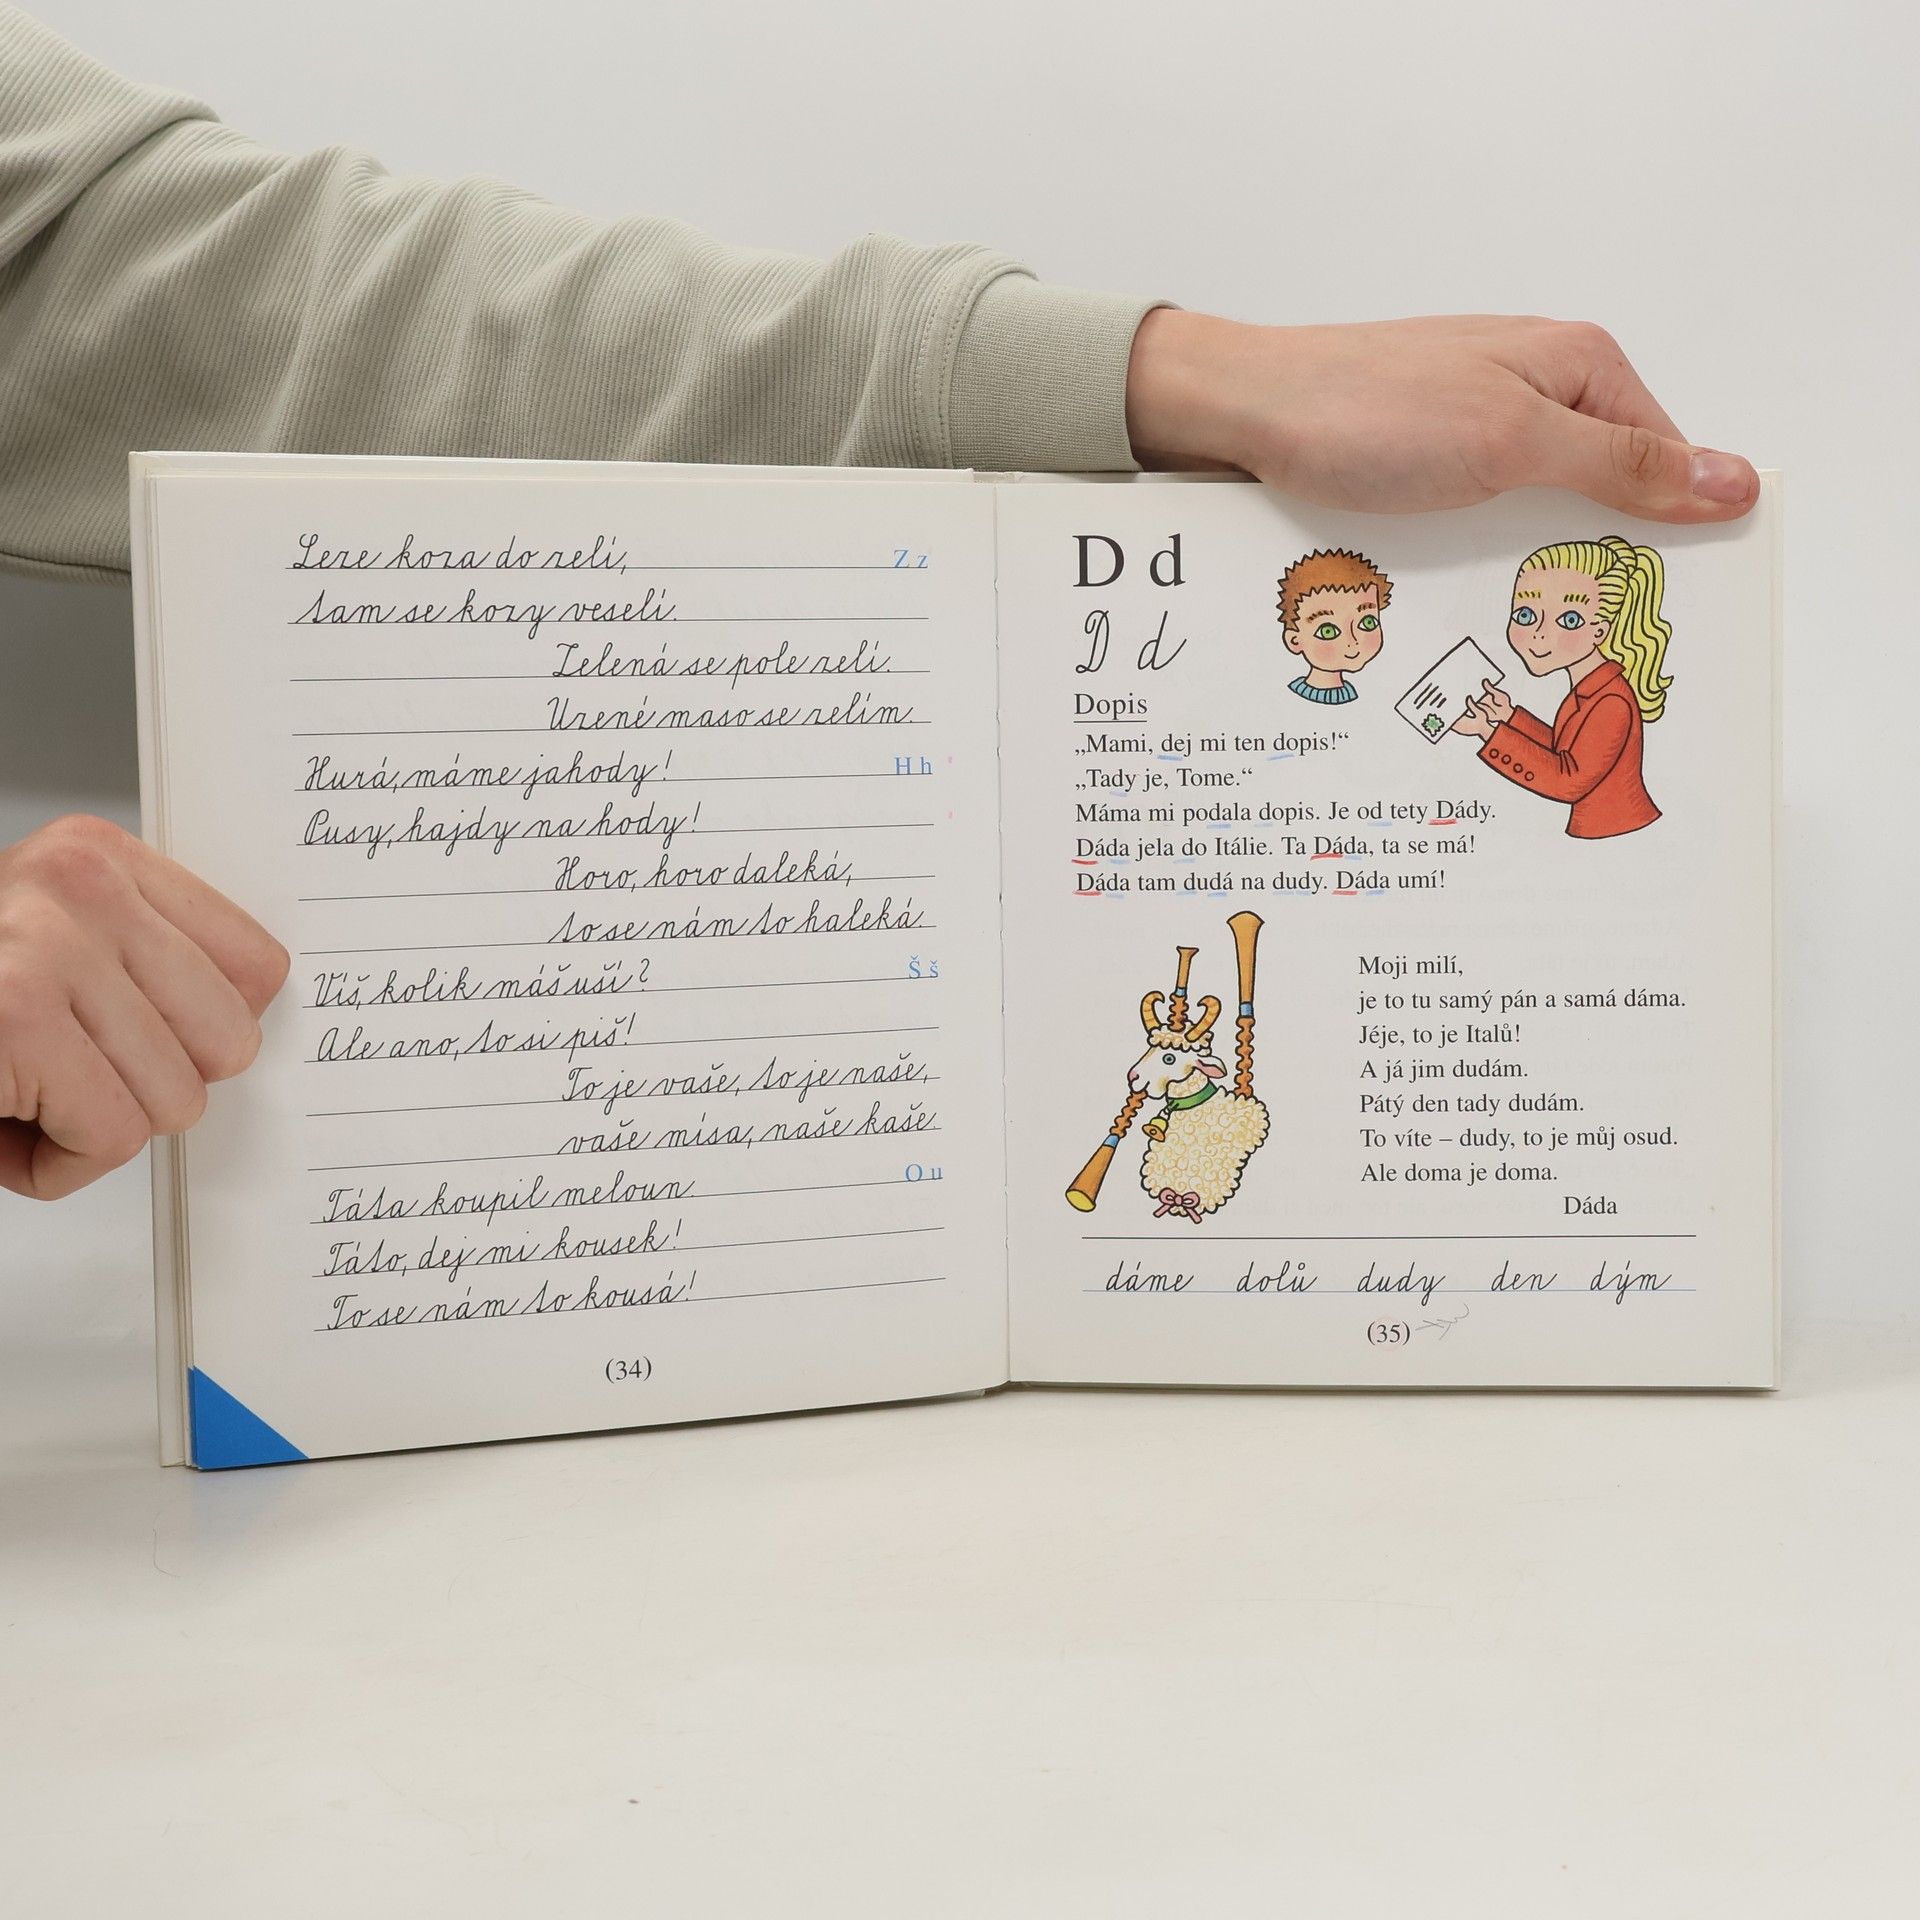 Leze koza do zelí, Z z
tam se kozy veselí.
Zelená se pole zelí.
Uzené maso se zelím.
Hurá, máme jahody! H h
Pusy, hajdy na hody!
Horo, horo daleká,
to se nám to haleká.
Víš, kolik máš uší? Š š
Ale ano, to si piš!
To je vaše, to je naše,
vaše mísa, naše kaše.
Táta koupil meloun. O u
Táto, dej mi kousek!
To se nám to kousá!
(34)
D d
D d
Dopis
„Mami, dej mi ten dopis!“
„Tady je, Tome.“
Máma mi podala dopis. Je od tety Dády.
Dáda jela do Itálie. Ta Dáda, ta se má!
Dáda tam dudá na dudy. Dáda umí!
Moji milí,
je to tu samý pán a samá dáma.
Jéje, to je Italů!
A já jim dudám.
Pátý den tady dudám.
To víte – dudy, to je můj osud.
Ale doma je doma.
Dáda
dáme dolů dudy den dým
(35)